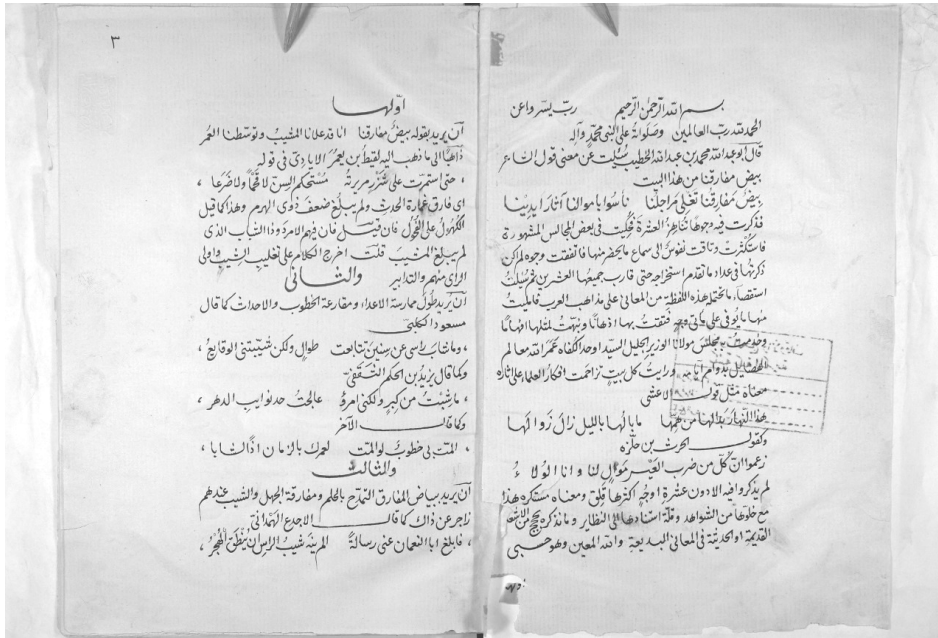 بسم الله الرحمن الرحيم رب يسر واعن
الحمد لله رب العالمين وصلواته على النبي محمد وآله
قال ابو عبد الله محمد بن عبد الله الخطيب سُئِلت عن معنى قول الشاعر
بيض مفارقنا من هذا البيت
بِيضٌ مَفَارِقُنا تَغْلِى مَرَاجِلُنَا نأسُوا باموالنا آثارَ ايدِينَا
فذكرت فيه وجوها تناهز العشرة فحُكِيت في بعض المجالس المشهورة
فاستُكثِرت وتاقت نفوسٌ الى سماع ما يحضر منها فاتفقت وجوه لم اكن
ذكرتُها في عداد ما تقدم استخراجه حتى قارب جميعها العشرين ثم سُئلتُ
استقصاء ما تحتمل هذه اللفظة من المعاني على مذاهب العرب فامليت
منها ما يوفى على مائتى وجه فتفتقت بها اذهانًا ونبهت بمثلها افهامًا
وخدمت به مجلس مولانا الوزير الجليل السيد اوحد الكفاه عمر الله معالم
الفضايل بدوام ايامه ورايت كل بيتٍ تزاحمت افكار العلماء على اثاره
معناه مثل قول الاعشى
هذا النهار بدا لها من همها ما بالُها بالليل زال زوالَها
وكقول الحرث بن حلزه
زعموا انّ كلّ من ضرب العَيْر مَوَالٍ لنا وانا الوَلاءُ
لم يذكروا فيه الا دون عشرة اوجه اكثرها قلق ومعناه مستكره هذا
مع خلوها من الشواهد وقلّة استنادها الى النظاير وما نذكره بحجج من الاشعار
القديمة او الحديثة في المعانى البديعة والله المعين وهو حسبى
٣
اوّلها
أن يريد بقوله بيضٌ مفارقنا انا قد علانا المشيبُ وتوسّطنا العمر
ذاهبًا الى ما ذهب اليه لقيطُ بن يعمُرَ الايادى في قوله
حتى استمرت على شَزْرٍ مريرتُه مُستحكم السِنّ لا قَحْمًا ولا ضَرَعا
اى فارق غمارة الحدث ولم يبلغ ضعف ذوى الهرم وهذا كما قيل
الكهُولُ على الفُحُول فان قيل فان فيهم الامرد وذا الشباب الذى
لم يبلغ المشيبَ قلتُ اخرج الكلام على تغليب الشيب واولى
الراى منهم والتدابير والثانى
أن يريد طُولَ ممارسة الاعداء ومقارعة الخطوب والاحداث كما قال
مسعود الكلبىّ
وما شاب راسى عن سِنين تتابعت طوالٍ ولكن شيّبتنى الوقايعُ
وكما قال يزيد بن الحكم الثقفىّ
ما شِبْتُ من كبرٍ ولكنى امرؤٌ عالجتُ حد نوايب الدهر
وكما قال الآخر
المت بى خطوبٌ لو المت لعمرك بالزمان اذًا لشابا
والثالث
أن يريد ببياض المفارق التمدّح بالحلم ومفارقة الجهل والشيب عندهم
زاجر عن ذاك كما قال الاجدع الهمدانى
فابلغ ابا النعمان عنى رسالةً الم ينهَ شيبُ الراس ان ينطق الهُجْرَ